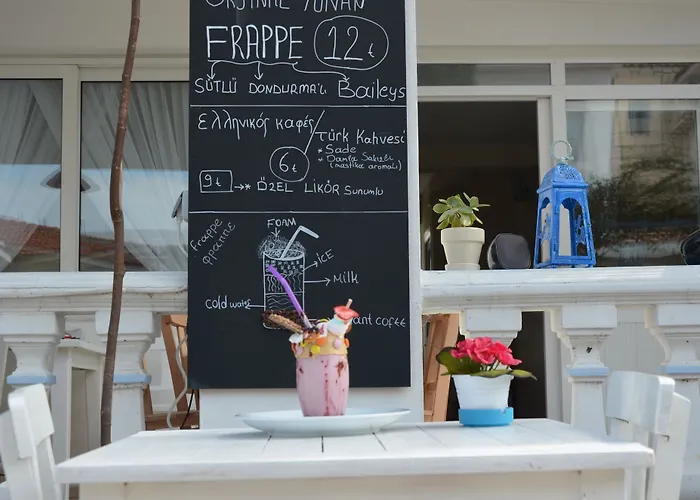 ORJİNAL YUNAN
FRAPPE 12₺
SÜTLÜ DONDURMA'lı Baileys
ελληνικός καφές / Türk Kahvesi
* Sade
6₺ * Damla Sakızlı
(mastika aromalı)
9₺ → * ÖZEL LİKÖR Sunumlu
frappe
φραππε
FOAM
ICE
Milk
cold water
instant coffee